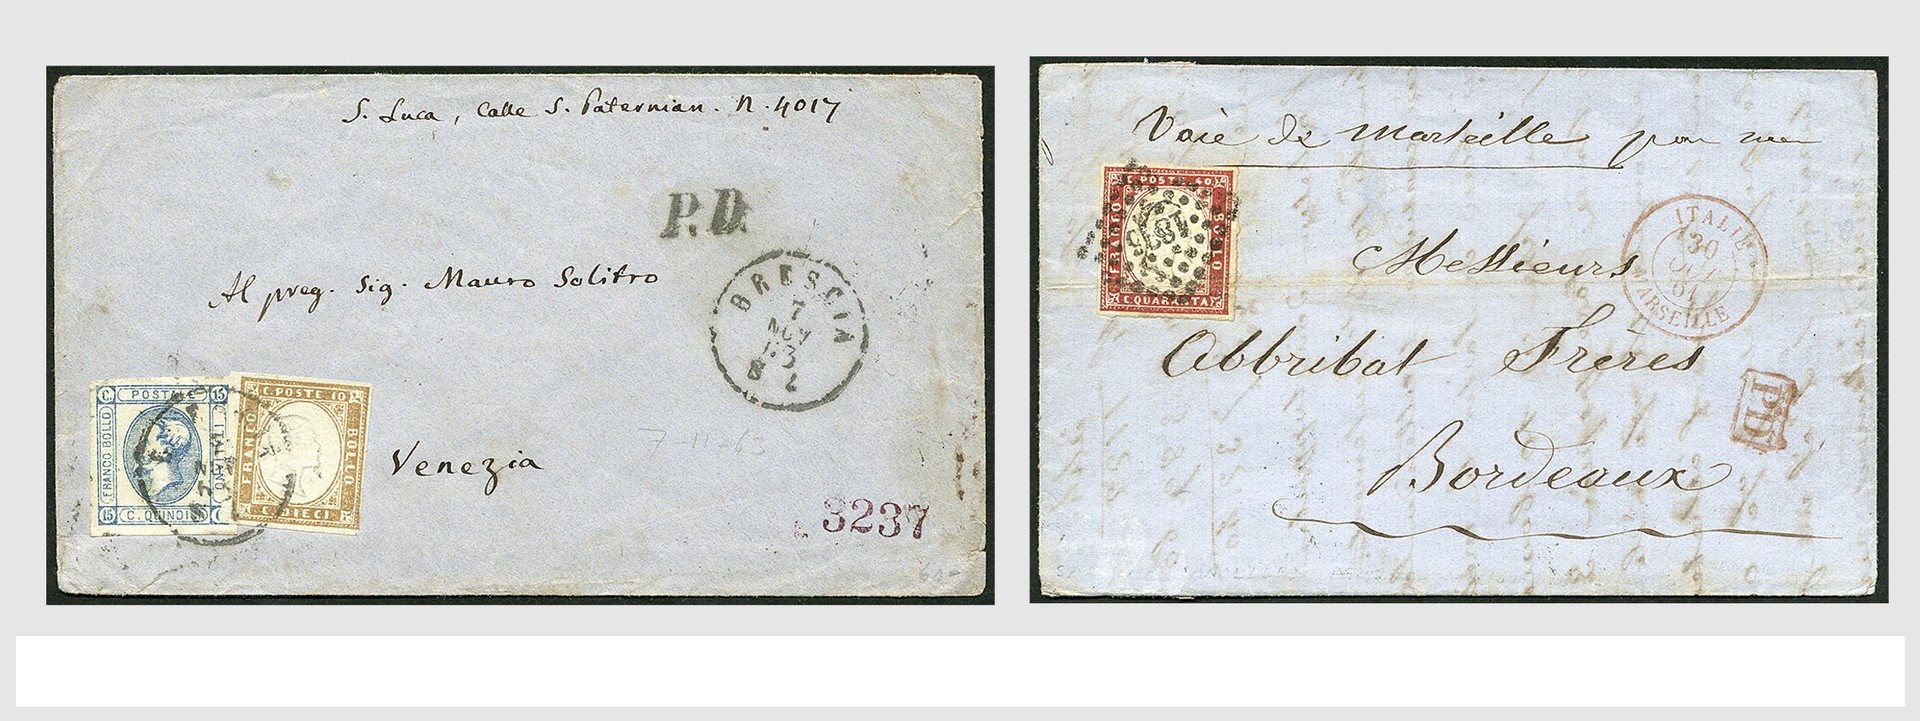 S. Luca, Calle S. Paternian. N. 4017
P.D.
Al preg. Sig. Mauro Solitro
BRESCIA
7
NOV
63
Venezia
7-11-63
3237
60-
C. POSTALE 15
FRANCO BOLLO
15 C. QUINDICI
C. POSTE 10
FRANCO
BOLLO
C. DIECI
Voie de Marseille par mer
C. POSTE 40
FRANCO
BOLLO
C. QUARANTA
ITALIE
30
61
MARSEILLE
Messieurs
Abbribat Freres
PD
Bordeaux